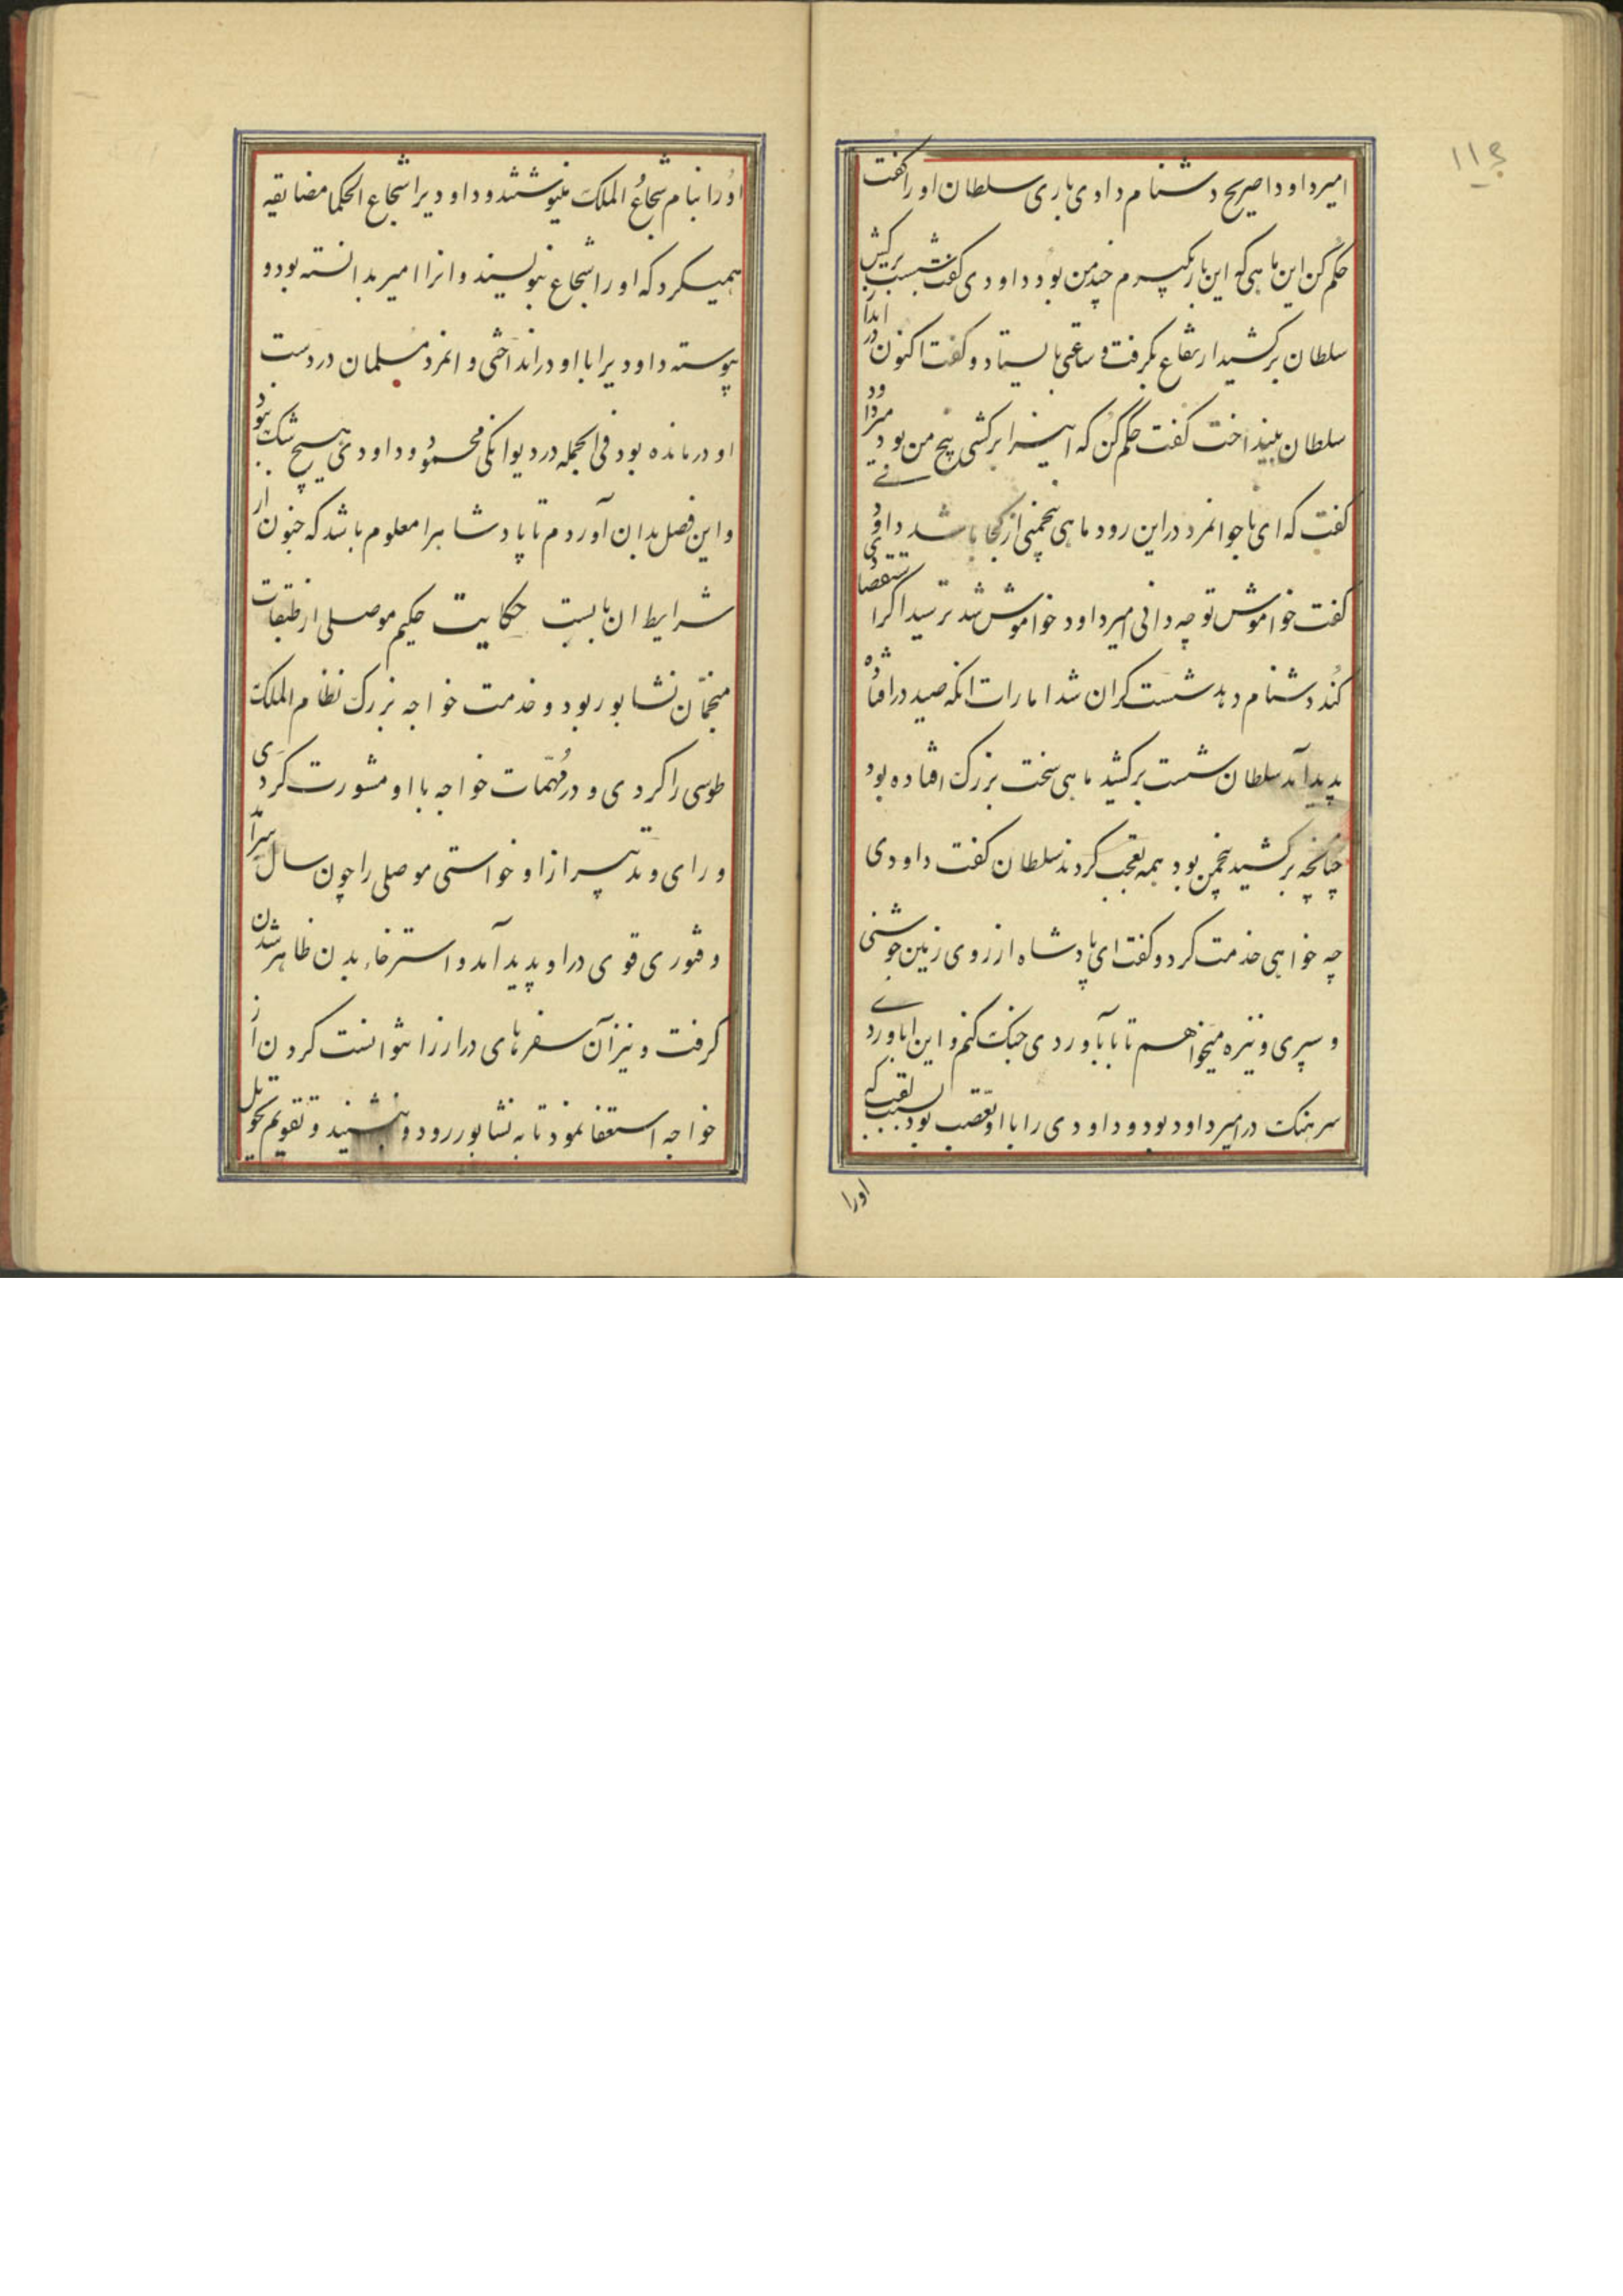 ۱۱۶
امیرداود را صریح دشنام دادی باری سلطان او را کفت
حکم کن این ماهی که این بار بکیرم چند من بود داودی کفت شست برکش
سلطان برکشید ارتفاع بکرفت و ساعتی بایستاد و کفت اکنون در انداز
سلطان بینداخت کفت حکم کن که این را برکشی پنج من بود امیرداود
کفت که ای ناجوانمرد در این رود ماهی پنجمنی از کجا باشد داودی
کفت خواموش تو چه دانی امیرداود خواموش شد ترسید اکر استقصا
کند دشنام دهد شست کران شد امارات انکه صید در افتاده
پدید آمد سلطان شست برکشید ماهی سخت بزرک افتاده بود
چنانچه برکشید پنجمن بود همه تعجب کردند سلطان کفت داودی
چه خواهی خدمت کرد و کفت ای پادشاه از روی زمین جوشنی
و سپری و نیزه میخواهم تا با باوردی جنک کنم و این باوردی
سرهنک در امیرداود بود و داودی را با او تعصب بود بسبب لقب که
اورا
اورا بنام شجاع الملک مینوشتند و داودیرا شجاع الحکما مضایقه
همیکرد که اورا شجاع بنویسند و انرا امیر بدانسته بود و
پیوسته داودیرا با او در انداختی و انمرد مسلمان در دست
او درمانده بود فی الجمله در دیوانکی محمود داودی هیچ شک نبود
و این فصل بدان آوردم تا پادشاهرا معلوم باشد که جنون از
شرایط ان بابست حکایت حکیم موصلی از طبقات
منجمان نشابور بود و خدمت خواجه بزرک نظام الملک
طوسی را کردی و در مهمات خواجه با او مشورت کردی
و رای و تدبیر از او خواستی موصلی را چون سال برآمد
و فتوری قوی در او پدید آمد و استرخاء بدن ظاهر شدن
کرفت و نیز آن سفرهای دراز را نتوانست کردن از
خواجه استعفا نمود تا به نشابور رود و بنشیند و تقویم تحویل